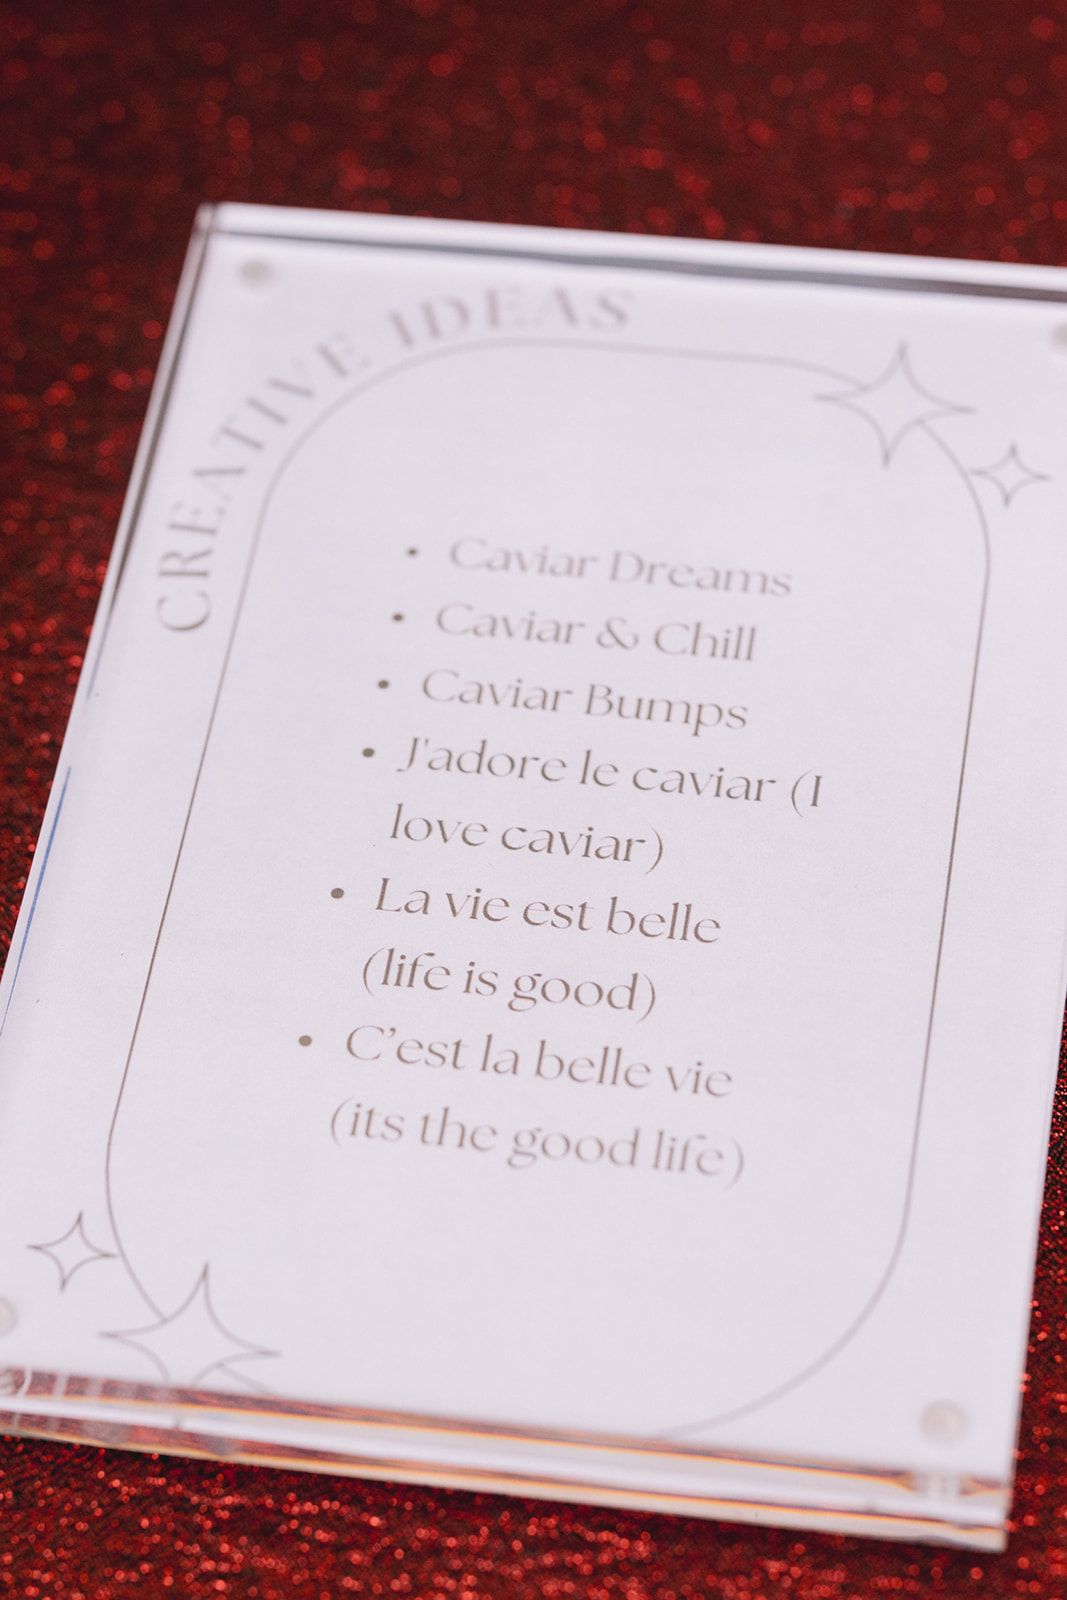 CREATIVE IDEAS
• Caviar Dreams
• Caviar & Chill
• Caviar Bumps
• J'adore le caviar (I
love caviar)
• La vie est belle
(life is good)
• C'est la belle vie
(its the good life)